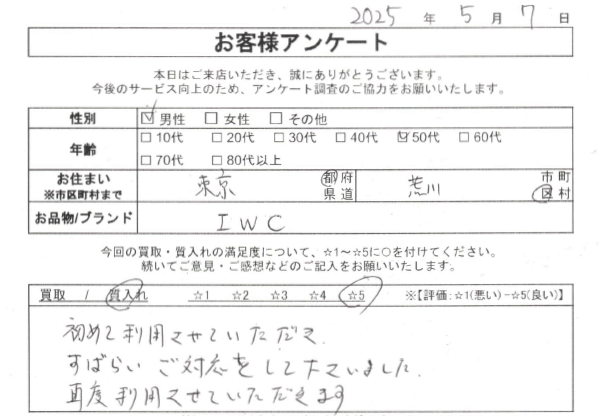 2025 年 5 月 7 日
お客様アンケート
本日はご来店いただき、誠にありがとうございます。
今後のサービス向上のため、アンケート調査のご協力をお願いいたします。
性別 ☑男性 □女性 □その他
年齢 □10代 □20代 □30代 □40代 ☑50代 □60代
□70代 □80代以上
お住まい ※市区町村まで 東京 都府県道 荒川 市町区村
お品物/ブランド IWC
今回の買取・質入れの満足度について、☆1～☆5に○を付けてください。
続いてご意見・ご感想などのご記入をお願いいたします。
買取 / 質入れ ☆1 ☆2 ☆3 ☆4 ☆5 ※【評価:☆1(悪い)－☆5(良い)】
初めて利用させていただき、
すばらいご対応をして下さいました。
再度利用させていただきます